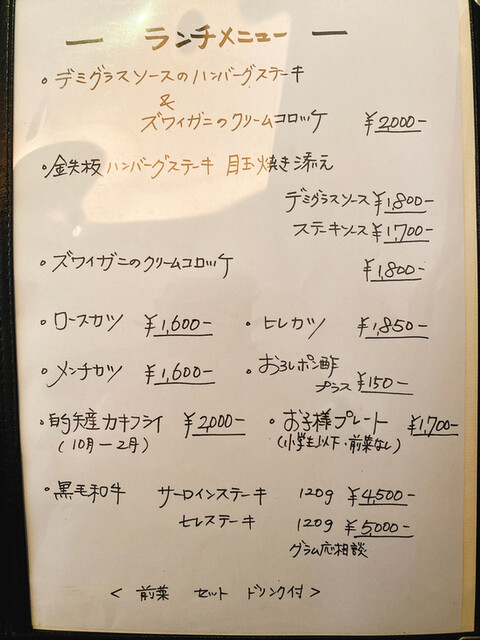 ー ランチメニュー ー
・デミグラスソースのハンバーグステーキ
&
ズワイガニのクリームコロッケ ¥2,000-
・金鉄板ハンバーグステーキ 目玉焼き添え
デミグラスソース ¥1,800-
ステーキソース ¥1,700-
・ズワイガニのクリームコロッケ ¥1,800-
・ロースカツ ¥1,600- ・ヒレカツ ¥1,850-
・メンチカツ ¥1,600- ・おろしポン酢
プラス ¥150-
・的矢産カキフライ ¥2,000- ・お子様プレート ¥1,700-
(10月ー2月) (小学生以下・前菜なし)
・黒毛和牛 サーロインステーキ 120g ¥4,500-
ヒレステーキ 120g ¥5,000-
グラム応相談
< 前菜 セット ドリンク付 >